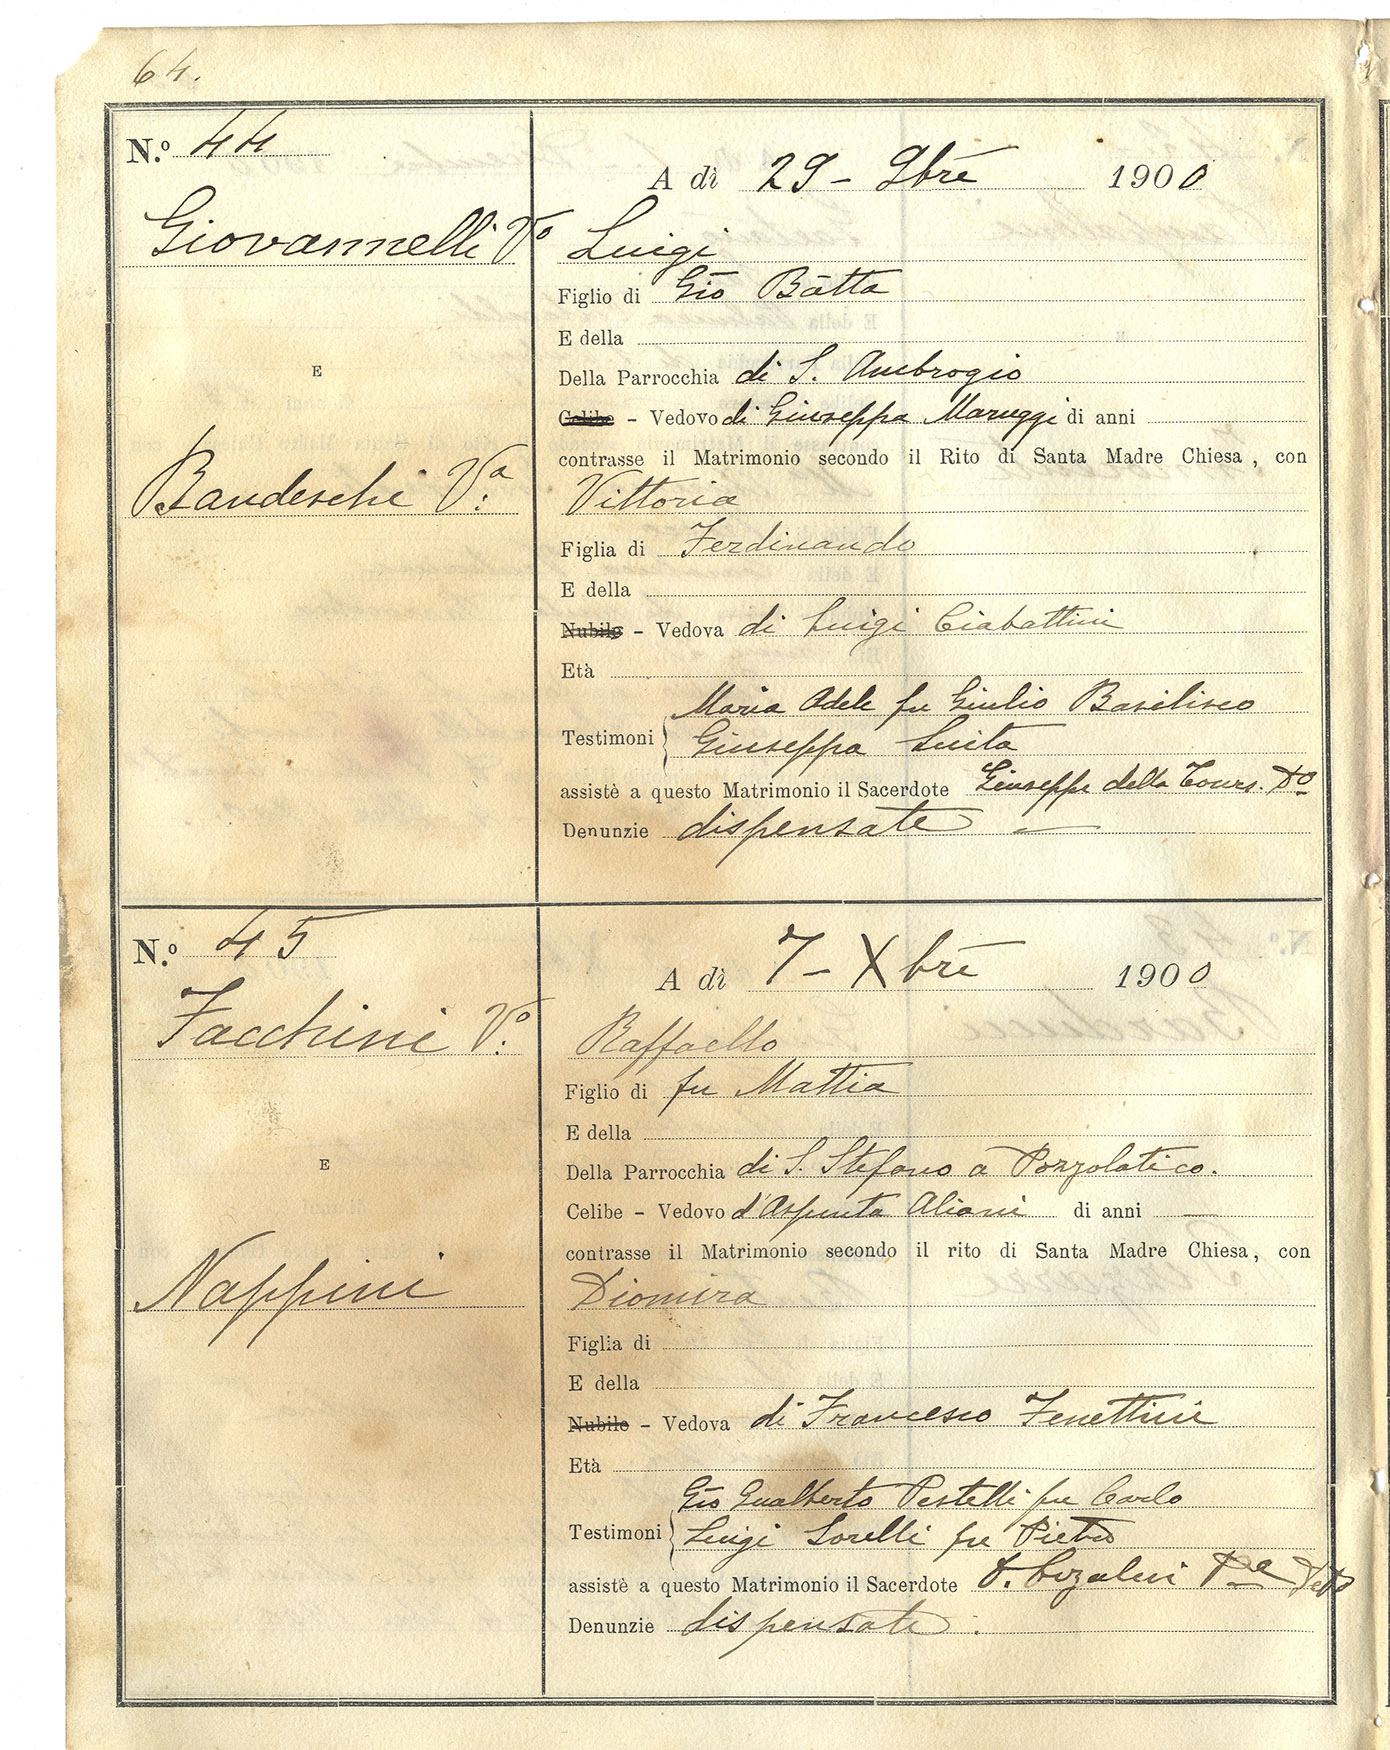 64.
N.º 44
A dì 29 - 9bre 1900
Giovannelli Vº Luigi
Figlio di Gio Batta
E della
E
Della Parrocchia di S. Ambrogio
Celibe - Vedovo di Giuseppa Maruggi di anni
contrasse il Matrimonio secondo il Rito di Santa Madre Chiesa, con
Bandeschi V.ª Vittoria
Figlia di Ferdinando
E della
Nubile - Vedova di Luigi Ciabattini
Età
Maria Adele fu Giulio Basilisco
Testimoni
Giuseppa Suita
assistè a questo Matrimonio il Sacerdote Giuseppe della
Denunzie dispensate —
N.º 45
A dì 7 - Xbre 1900
Facchini V.º Raffaello
Figlio di fu Mattia
E della
E
Della Parrocchia di S. Stefano a Pozzolatico.
Celibe - Vedovo d'Aspunta Aliani di anni —
contrasse il Matrimonio secondo il rito di Santa Madre Chiesa, con
Nappini Diomira
Figlia di
E della
Nubile - Vedova di Francesco Fenettini
Età
Gio Gualberto Pestelli fu Carlo
Testimoni
Luigi Sorelli fu Pietro
assistè a questo Matrimonio il Sacerdote
Denunzie dispensate.